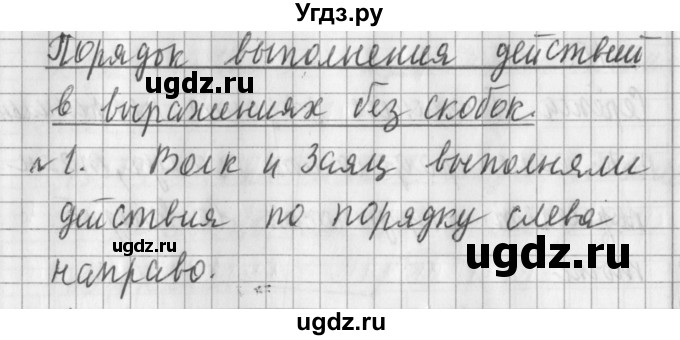 Угдз.ру
Порядок выполнения действий
ugdz.ru
ugdz.ru
в выражениях без скобок.
№1. Волк и Заяц выполняли
действия по порядку слева
ugdz.ru
ugdz.ru
направо.
ugdz.ru